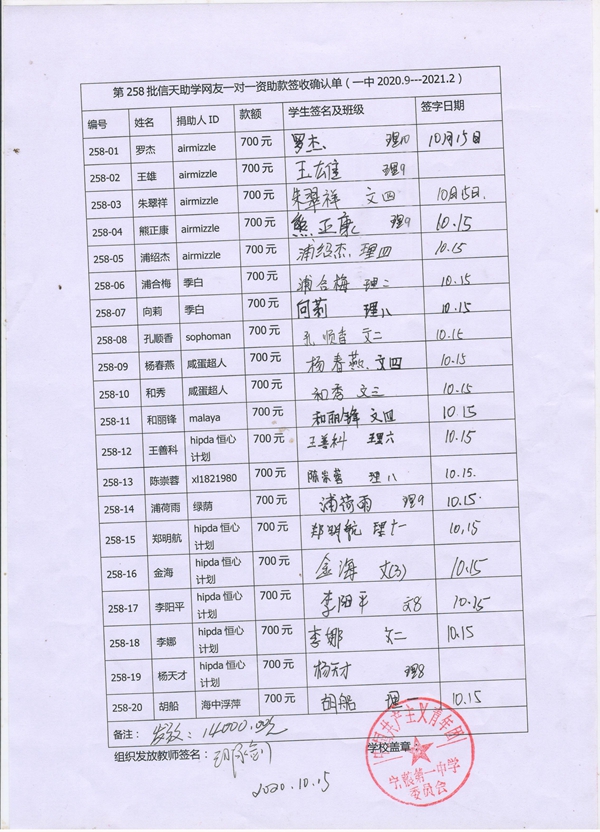 第258批信天助学网友一对一资助款签收确认单（一中2020.9---2021.2）
编号 姓名 捐助人ID 款额 学生签名及班级 签字日期
258-01 罗杰 airmizzle 700元 罗杰 理10 10月15日
258-02 王雄 airmizzle 700元 王雄 理9
258-03 朱翠祥 airmizzle 700元 朱翠祥 文四 10月15日.
258-04 熊正康 airmizzle 700元 熊正康 理9 10.15
258-05 浦绍杰 airmizzle 700元 浦绍杰 理四 10.15
258-06 浦合梅 季白 700元 浦合梅 理二 10.15
258-07 向莉 季白 700元 向莉 理八 10.15
258-08 孔顺香 sophoman 700元 孔顺香 文二 10.15
258-09 杨春燕 咸蛋超人 700元 杨春燕 文四 10.15
258-10 和秀 咸蛋超人 700元 和秀 文三 10.15
258-11 和丽锋 malaya 700元 和丽锋 文四 10.15
258-12 王善科 hipda恒心计划 700元 王善科 理六 10.15
258-13 陈崇蓉 xl1821980 700元 陈崇蓉 理八 10.15.
258-14 浦荷雨 绿荫 700元 浦荷雨 理9 10.15.
258-15 郑明航 hipda恒心计划 700元 郑明航 理十一 10.15
258-16 金海 hipda恒心计划 700元 金海 文(3) 10.15
258-17 李阳平 hipda恒心计划 700元 李阳平 文8 10.15
258-18 李娜 hipda恒心计划 700元 李娜 文二 10.15
258-19 杨天才 hipda恒心计划 700元 杨天才 理8
258-20 胡船 海中浮萍 700元 胡船 理一 10.15
备注： 发放：14000.00元
组织发放教师签名： 学校盖章
2020.10.15
中国共产主义青年团
第一中学
委员会